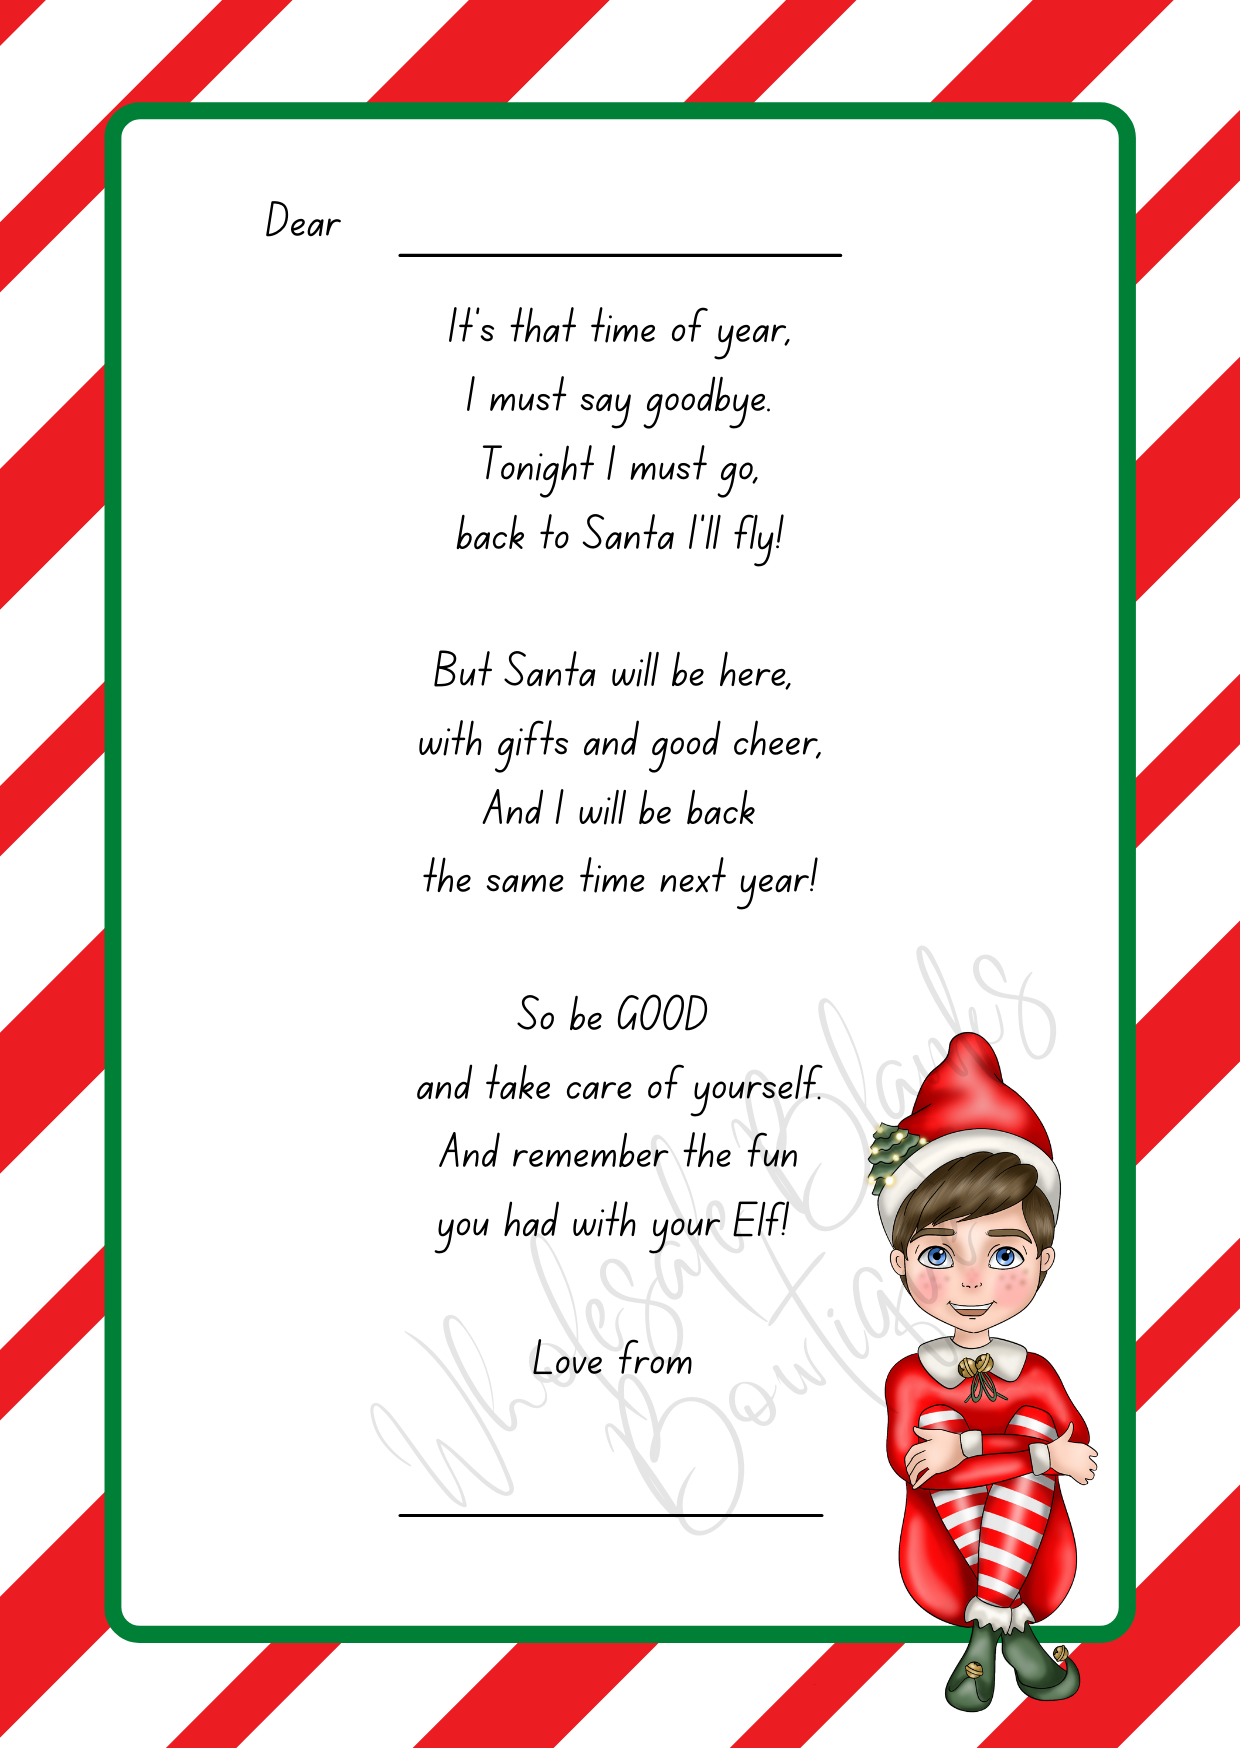 Dear
It's that time of year,
I must say goodbye.
Tonight I must go,
back to Santa I'll fly!
But Santa will be here,
with gifts and good cheer,
And I will be back
the same time next year!
So be GOOD
and take care of yourself.
And remember the fun
you had with your Elf!
Love from
Wholesale Blanks
Bowtique